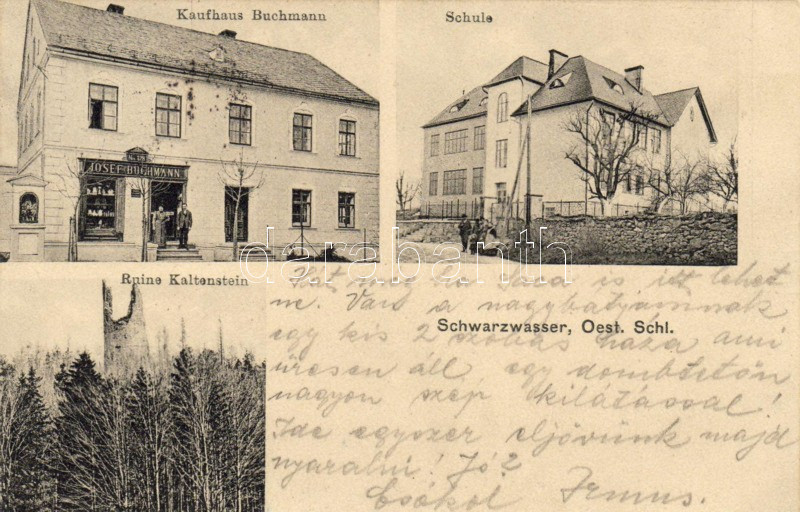 Kaufhaus Buchmann
Schule
JOSEF BUCHMANN
Ruine Kaltenstein
darabanth
Schwarzwasser, Oest. Schl.
Hát még ha Sára is itt lehet
ne. Van a nagybátyámnak
egy kis 2 szobás háza ami
üresen áll egy dombtetőn
nagyon szép kilátással!
Ide egyszer eljövünk majd
nyaralni! Jó?
Csókol Irmus.